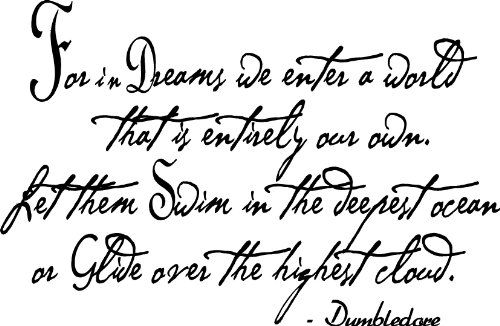 For in Dreams we enter a world
that is entirely our own.
Let them Swim in the deepest ocean
or Glide over the highest cloud.
- Dumbledore